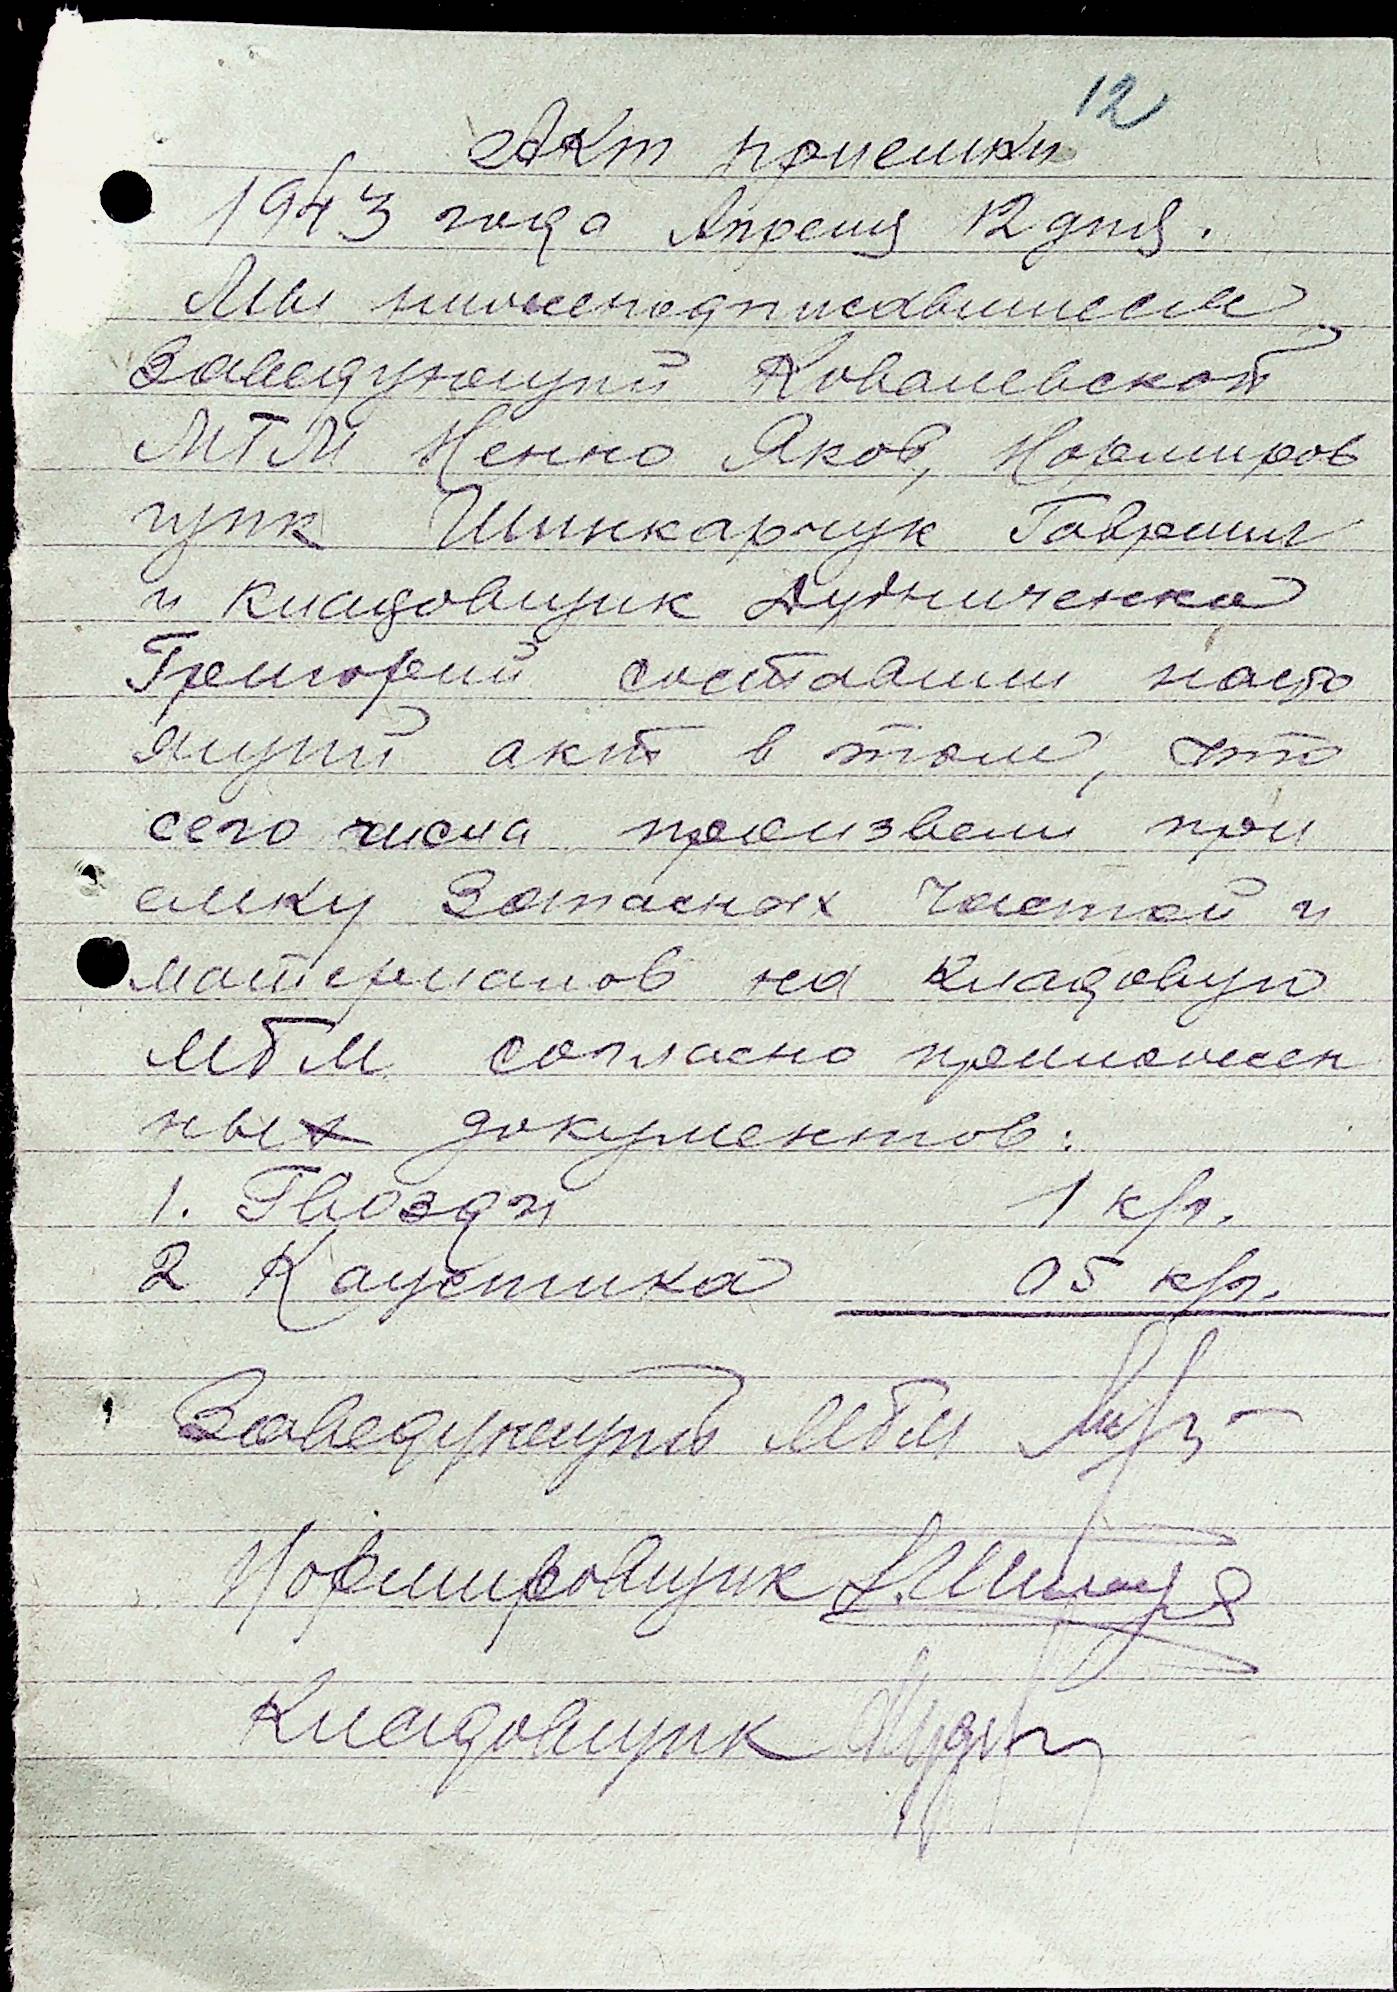 12
Акт приемки
1943 года Апреля 12 дня.
Мы нижеподписавшиеся
Заведующий Ковалевской
МТМ Ненно Яков, Нормиров
щик Шинкарчук Гавриил
и кладовщик Дудниченко
Григорий составили насто
ящий акт в том, что
сего числа произвели при
емку Запасных Частей и
материалов на кладовую
МТМ согласно приложен
ных документов:
1. Гвозди 1 кгр.
2 Каустика 05 кгр.
Заведующий МТМ
Нормировщик
Кладовщик